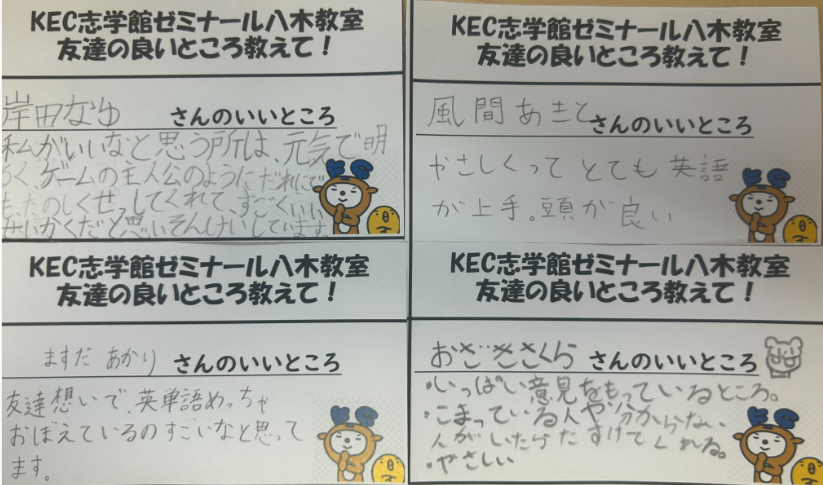 KEC志学館ゼミナール八木教室
友達の良いところ教えて!
岸田なゆ さんのいいところ
私がいいなと思う所は、元気で明
るく、ゲームの主人公のようにだれにで
も、たのしくせっしてくれて、すごくいい
せいかくだと思いそんけいしています。
KEC志学館ゼミナール八木教室
友達の良いところ教えて!
風間あきと さんのいいところ
やさしくって とても 英語
が上手。頭が良い
KEC志学館ゼミナール八木教室
友達の良いところ教えて!
ますだ あかり さんのいいところ
友達想いで、英単語めっちゃ
おぼえているのすごいなと思って
ます。
KEC志学館ゼミナール八木教室
友達の良いところ教えて!
おざきさくら さんのいいところ
・いっぱい意見をもっているところ。
・こまっている人や分からない
人がいたらたすけてくれる。
・やさしい